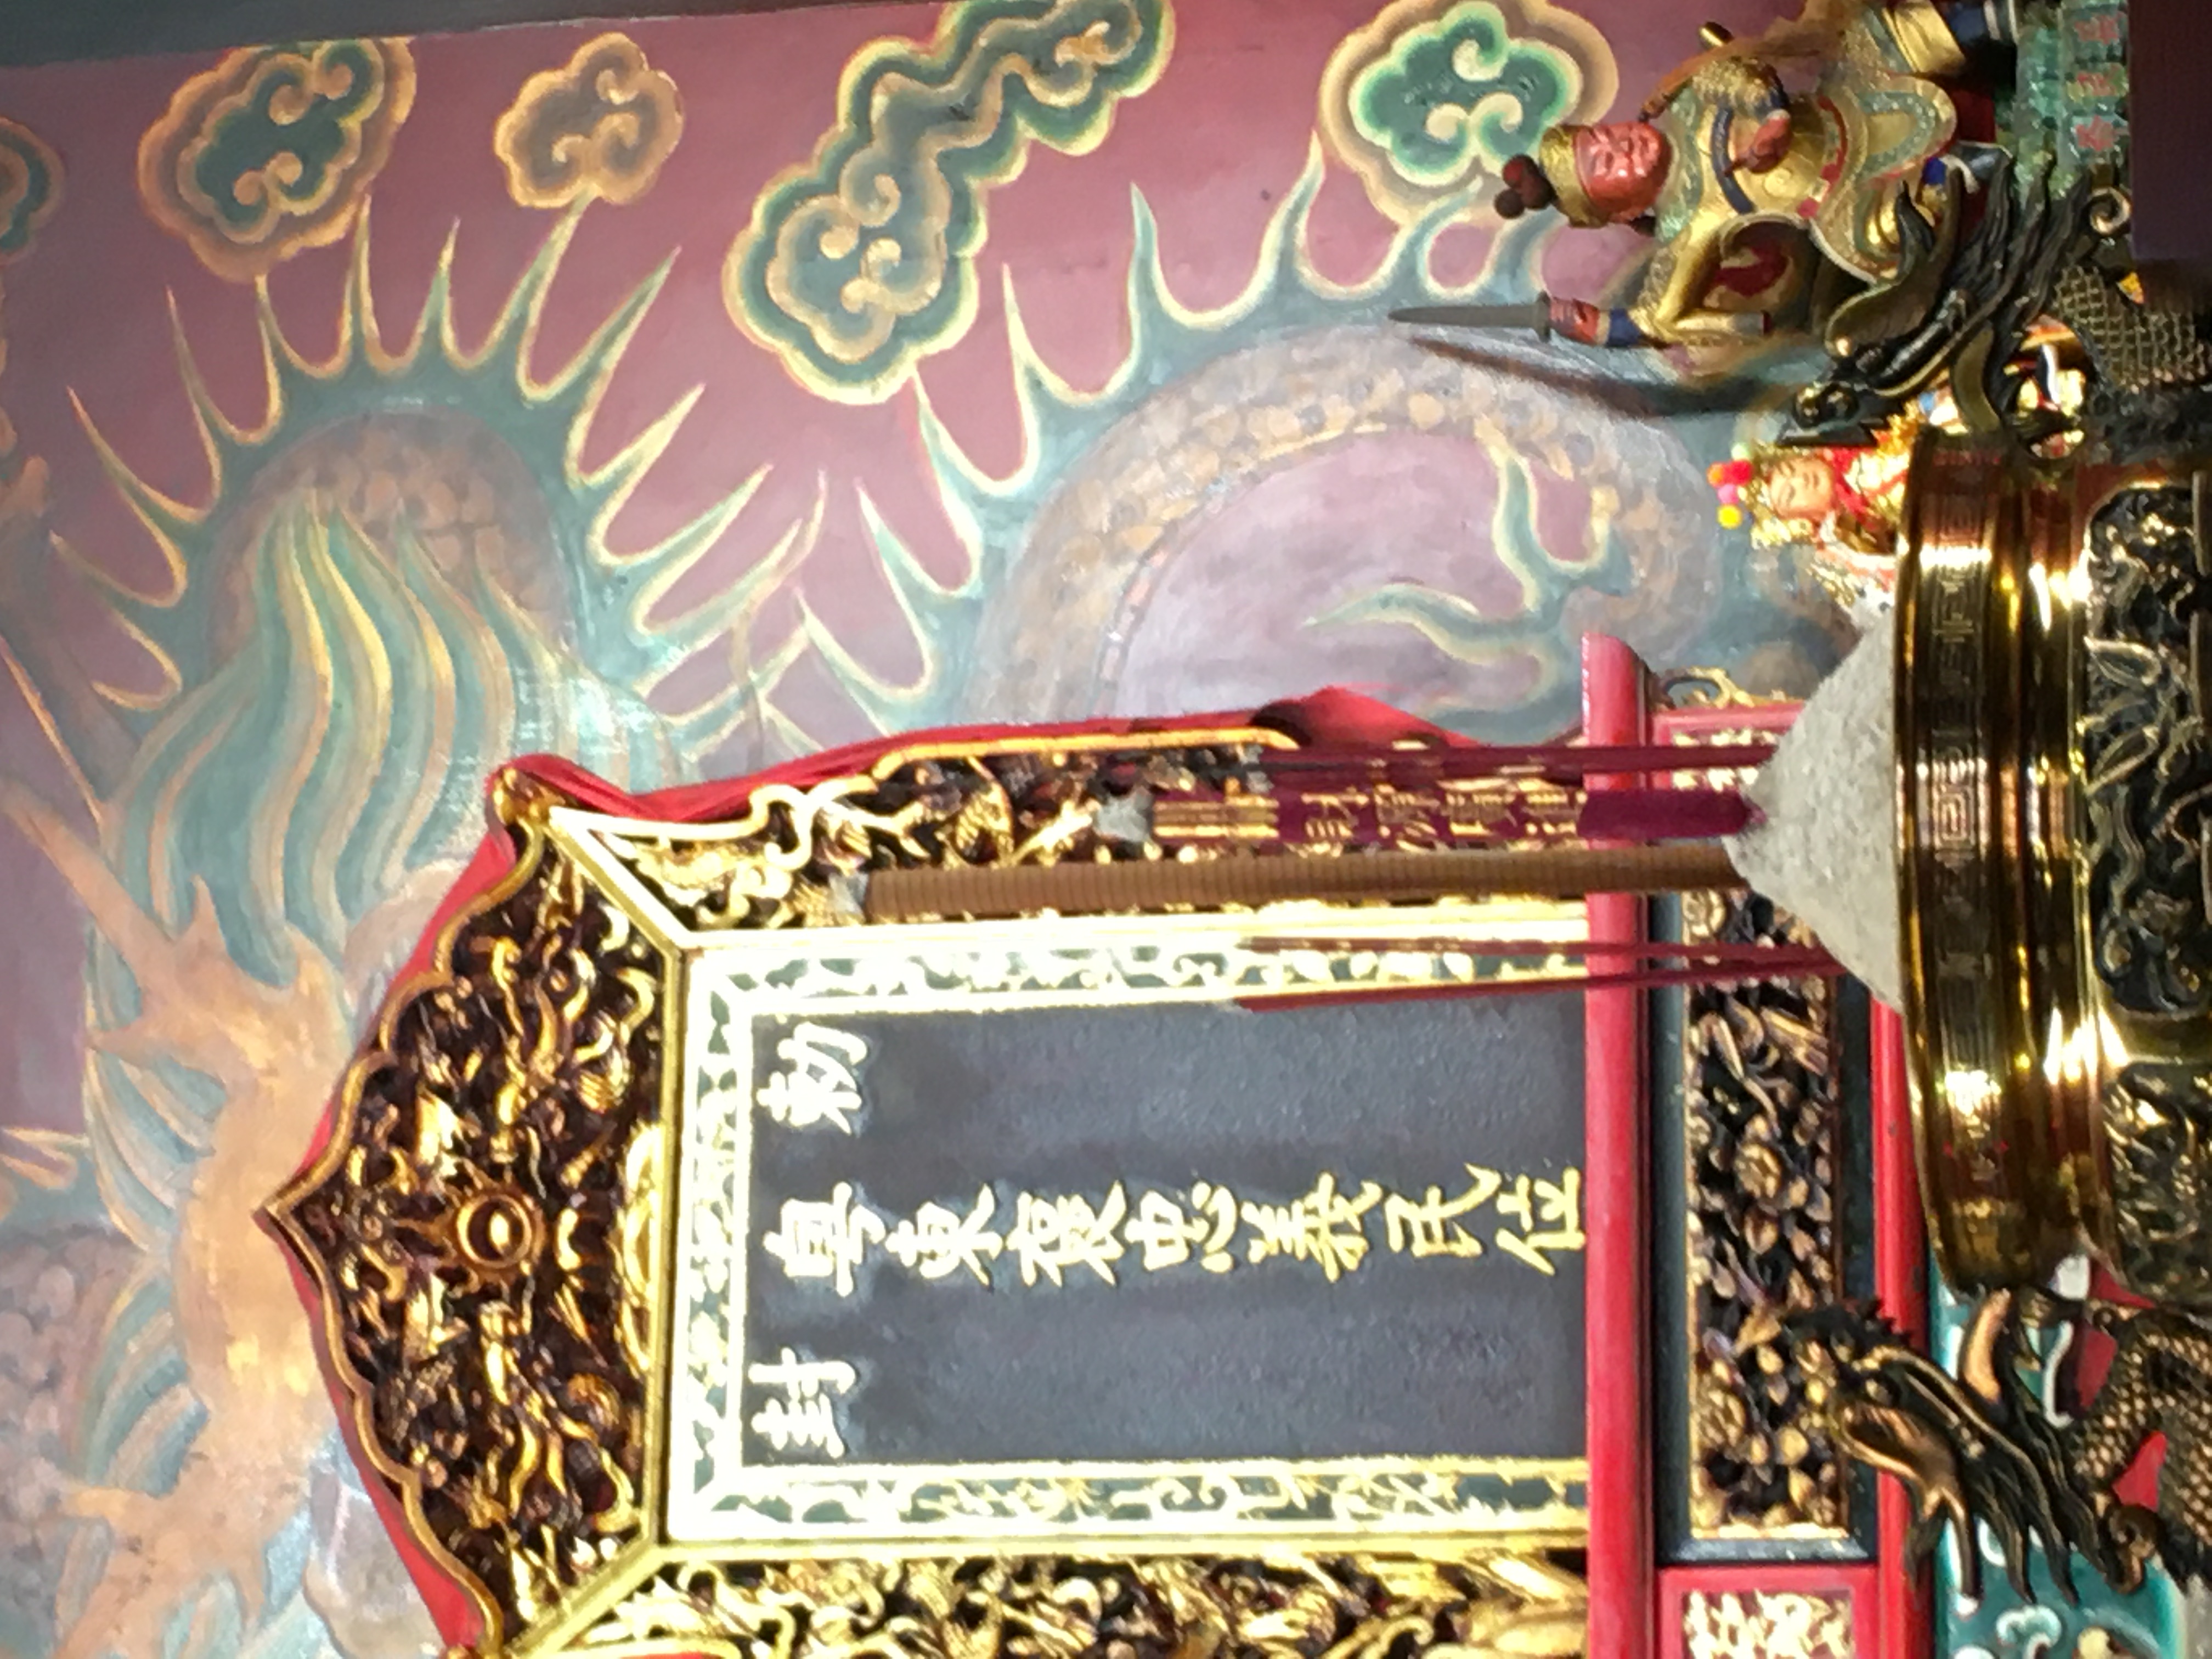 勅封
粵東褒忠義民位